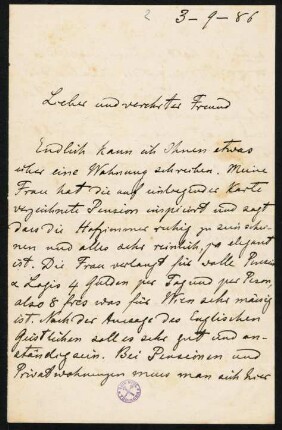 2
3-9-86
Lieber und verehrter Freund
Endlich kann ich Ihnen etwas
über eine Wohnung schreiben. Meine
Frau hat die auf einliegender Karte
verzeichnete Pension inspicirt und sagt
dass die Hofzimmer ruhig zu sein schei-
nen und alles sehr reinlich, ja elegant
ist. Die Frau verlangt für volle Pension
& Logis 4 Gulden per Tag und per Person,
also 8 frcs was für Wien sehr mässig
ist. Nach der Aussage des Englischen
Geistlichen soll es sehr gut und an-
ständig sein. Bei Pensionen und
Privatwohnungen muss man sich hier